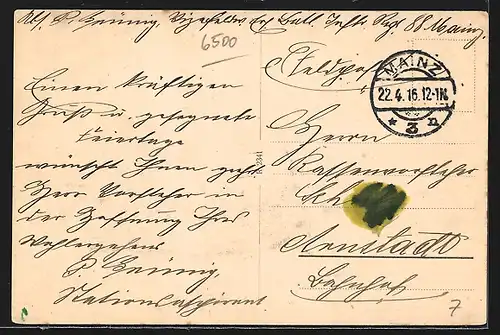 Abs. P. Hennig, Vizefeldw. Ers. Batl. Inft. Rgt. 88 Mainz.
6500
Feldpost
MAINZ
22.4.16.12-1N.
* 3 n
Einen kräftigen
Gruß u. gesegnete
Feiertage
wünscht Ihnen geehr.
Herr Vorsteher in
der Hoffnung Ihres
Wohlergehens
P. Hennig
Stationsaspirant
Herrn
Kassenvorsteher
Arnstadt
Bahnhof
7